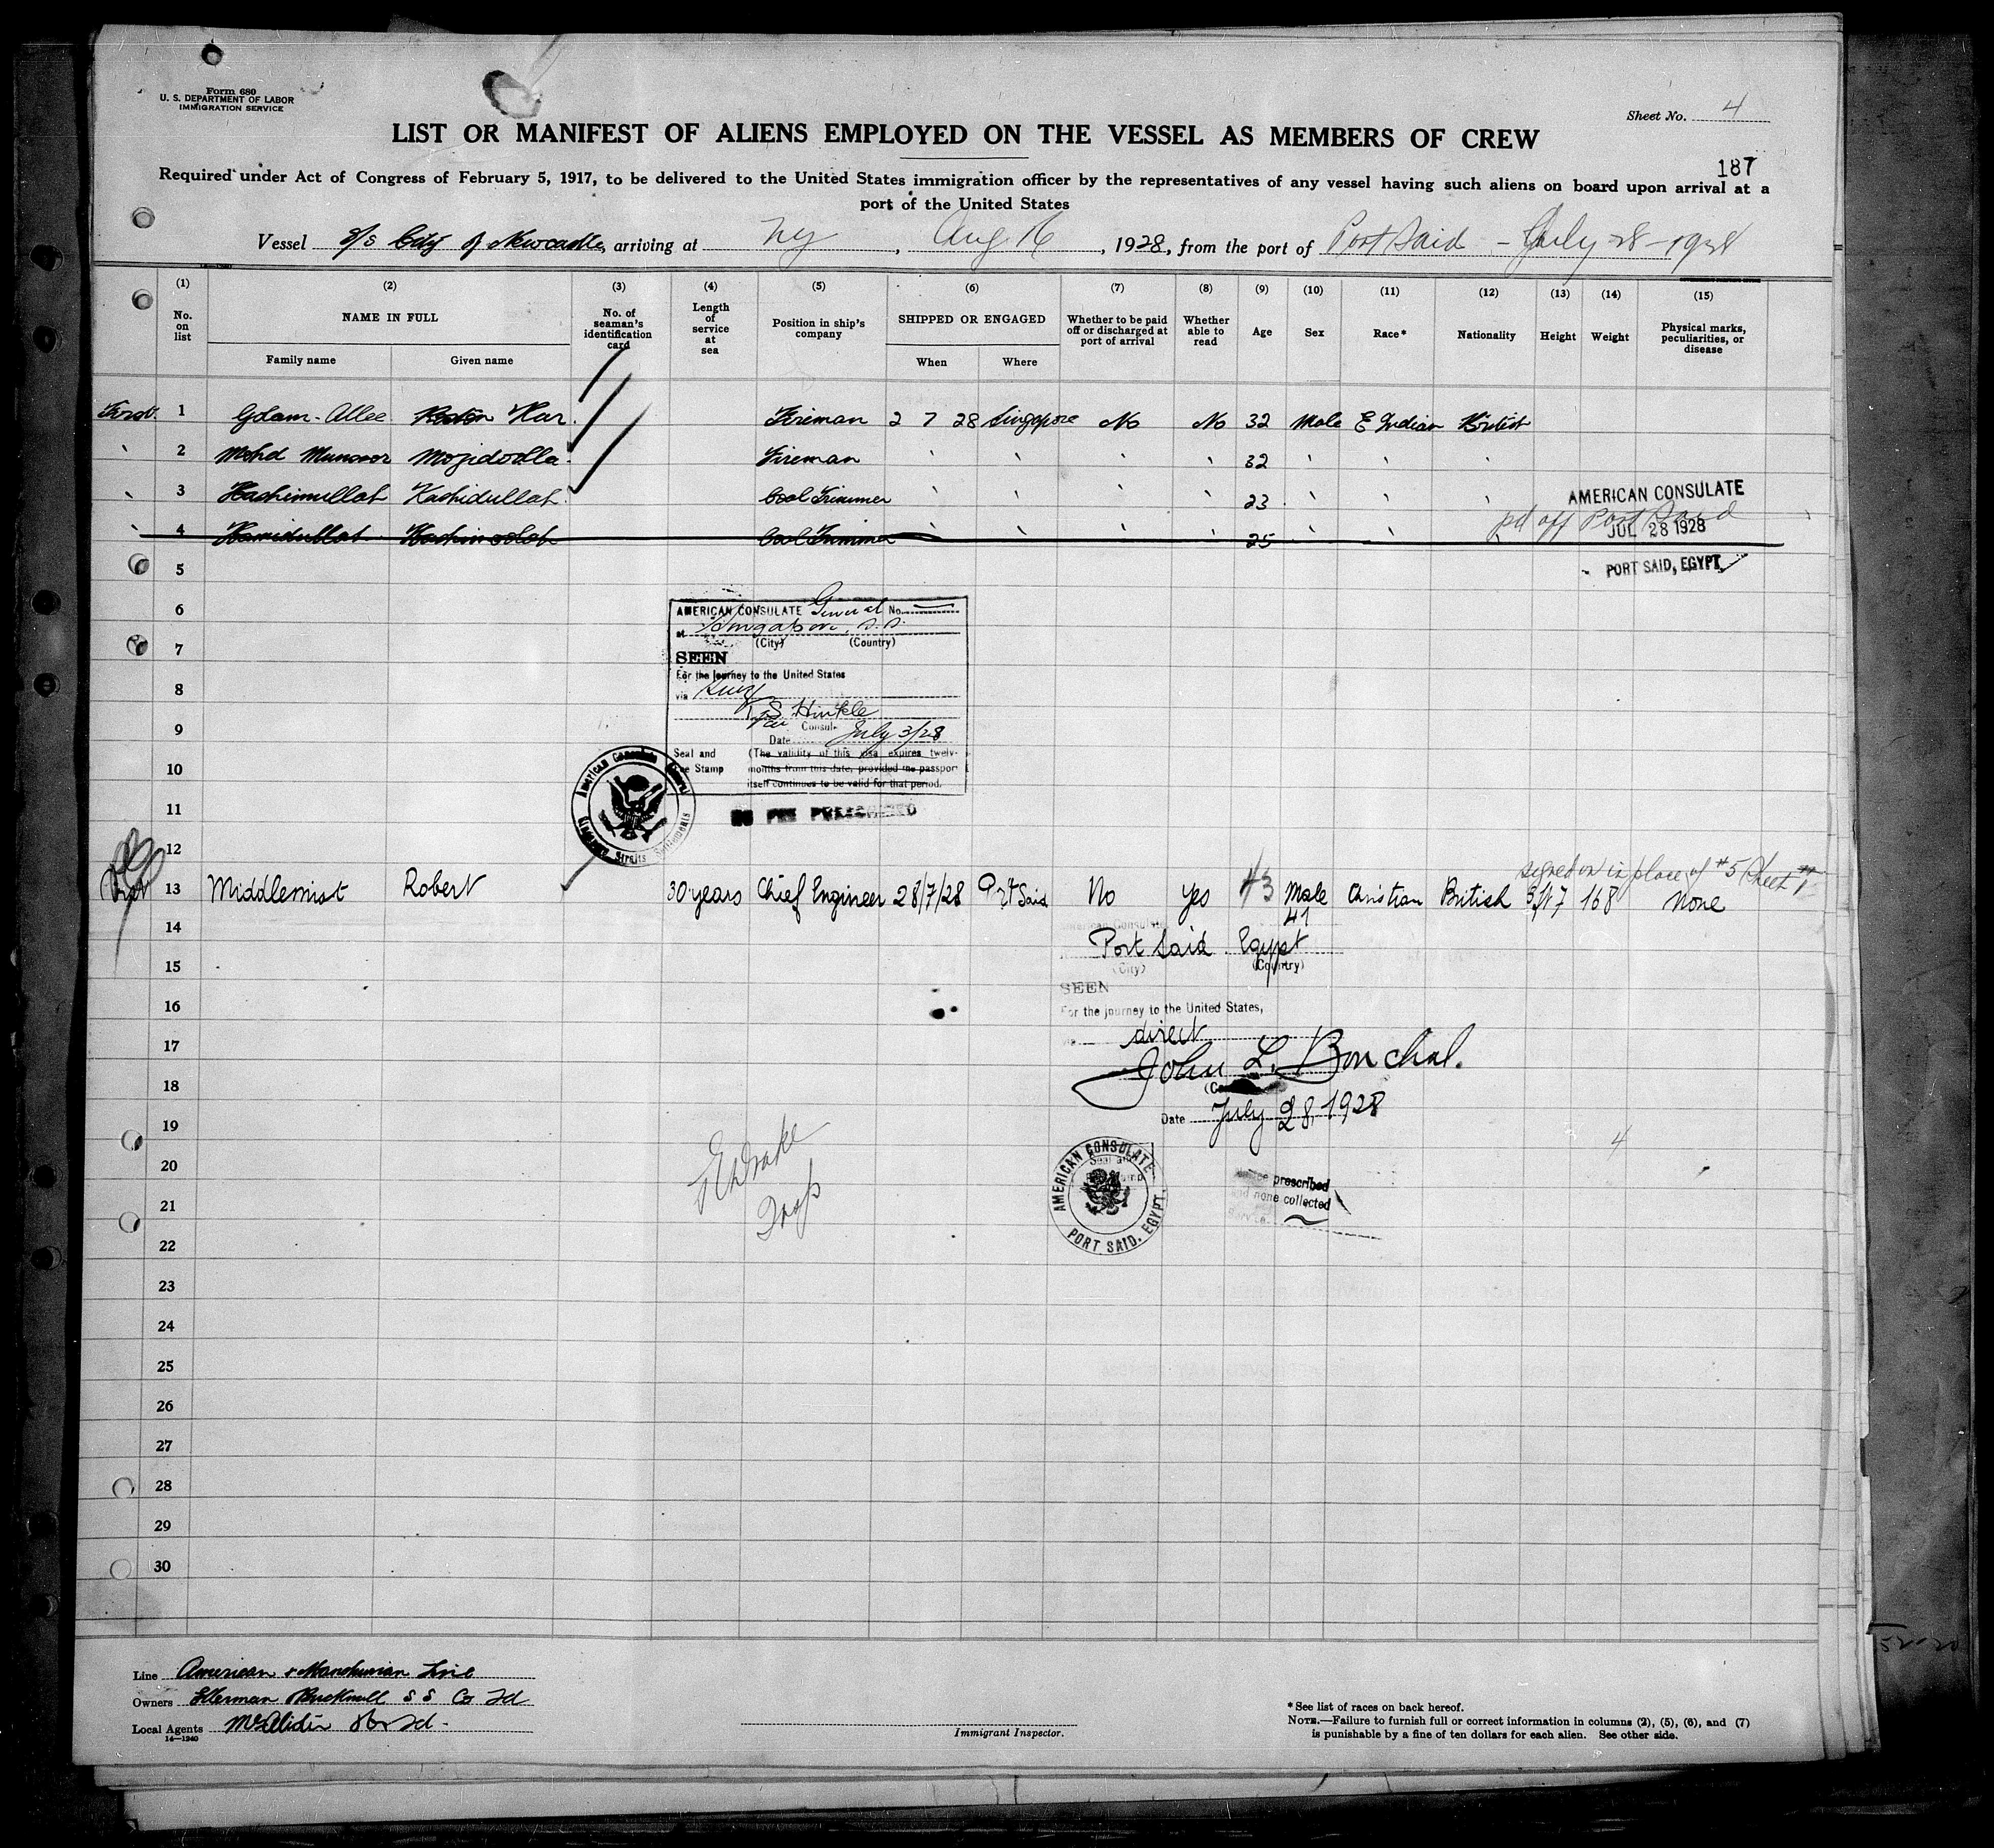 Form 680
U. S. DEPARTMENT OF LABOR
IMMIGRATION SERVICE
Sheet No. 4
LIST OR MANIFEST OF ALIENS EMPLOYED ON THE VESSEL AS MEMBERS OF CREW
187
Required under Act of Congress of February 5, 1917, to be delivered to the United States immigration officer by the representatives of any vessel having such aliens on board upon arrival at a
port of the United States
Vessel S/S City of Newcastle, arriving at NY, Aug 16, 1928, from the port of Port Said - July 28 - 1928
(1) (2) (3) (4) (5) (6) (7) (8) (9) (10) (11) (12) (13) (14) (15)
No. on list NAME IN FULL No. of seaman's identification card Length of service at sea Position in ship's company SHIPPED OR ENGAGED Whether to be paid off or discharged at port of arrival Whether able to read Age Sex Race* Nationality Height Weight Physical marks, peculiarities, or disease
Family name Given name When Where
First 1 Golam-Allee Har Fireman 2 7 28 Singapore No No 32 Male E Indian British
" 2 Mohd Munsoor Mozidoolla Fireman " " " " 32 " " "
" 3 Hachimullah Kashidullah Coal Trimmer " " " " 23 " " "
" 4 Hamidullah Coal Trimmer " " " " 25 " " pd off Port Said
AMERICAN CONSULATE
JUL 28 1928
PORT SAID, EGYPT
5
6
7
8
9
10
11
12
AMERICAN CONSULATE General No.
at Singapore, S.S.
(City) (Country)
SEEN
For the journey to the United States
via Suez
Hinkle
Consul
Date July 3/28
Seal and Fee Stamp (The validity of this visa expires twelve months from this date, provided the passport itself continues to be valid for that period.
American Consulate General
Straits Settlements
NO FEE PRESCRIBED
signed on in place of #5 Sheet #1
First 13 Middlemist Robert 30 years Chief Engineer 28/7/28 Port Said No Yes 43 Male Christian British 5'7 168 None
41
14
15
16
17
18
19
20
21
22
23
24
25
26
27
28
29
30
American Consulate
Port Said Egypt
(City) (Country)
SEEN
For the journey to the United States,
via direct
John L.
Date July 28, 1928
AMERICAN CONSULATE
Seal and
PORT SAID, EGYPT.
prescribed
and none collected
Service
Drake
Insp
4
Line American & Manchurian Line
Owners Ellerman Bucknall S S Co Ld
Local Agents
14—1940
Immigrant Inspector.
*See list of races on back hereof.
NOTE.—Failure to furnish full or correct information in columns (2), (5), (6), and (7)
is punishable by a fine of ten dollars for each alien. See other side.